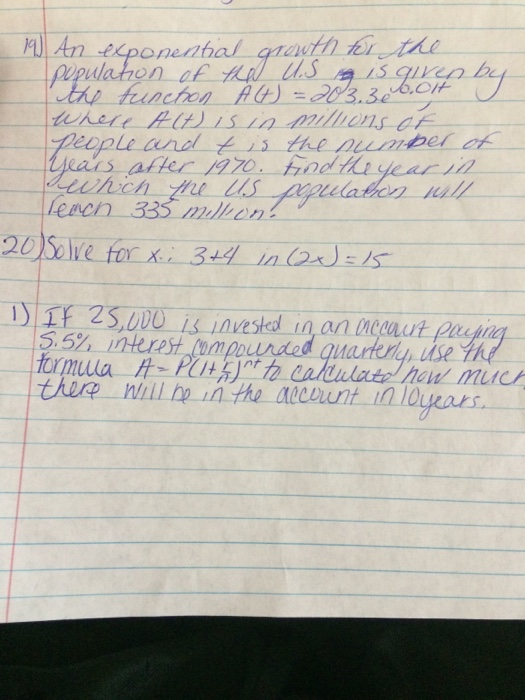 19) An exponential growth for the
population of the U.S is given by
the function A(t) = 203.3e^0.01t,
where A(t) is in millions of
people and t is the number of
years after 1970. Find the year in
which the US population will
reach 335 million.
20) Solve for x.: 3+4 in (2x) = 15
1) If 25,000 is invested in an account paying
5.5% interest compounded quarterly, use the
formula A = P(1+r/n)^nt to calculate how much
there will be in the account in 10 years.